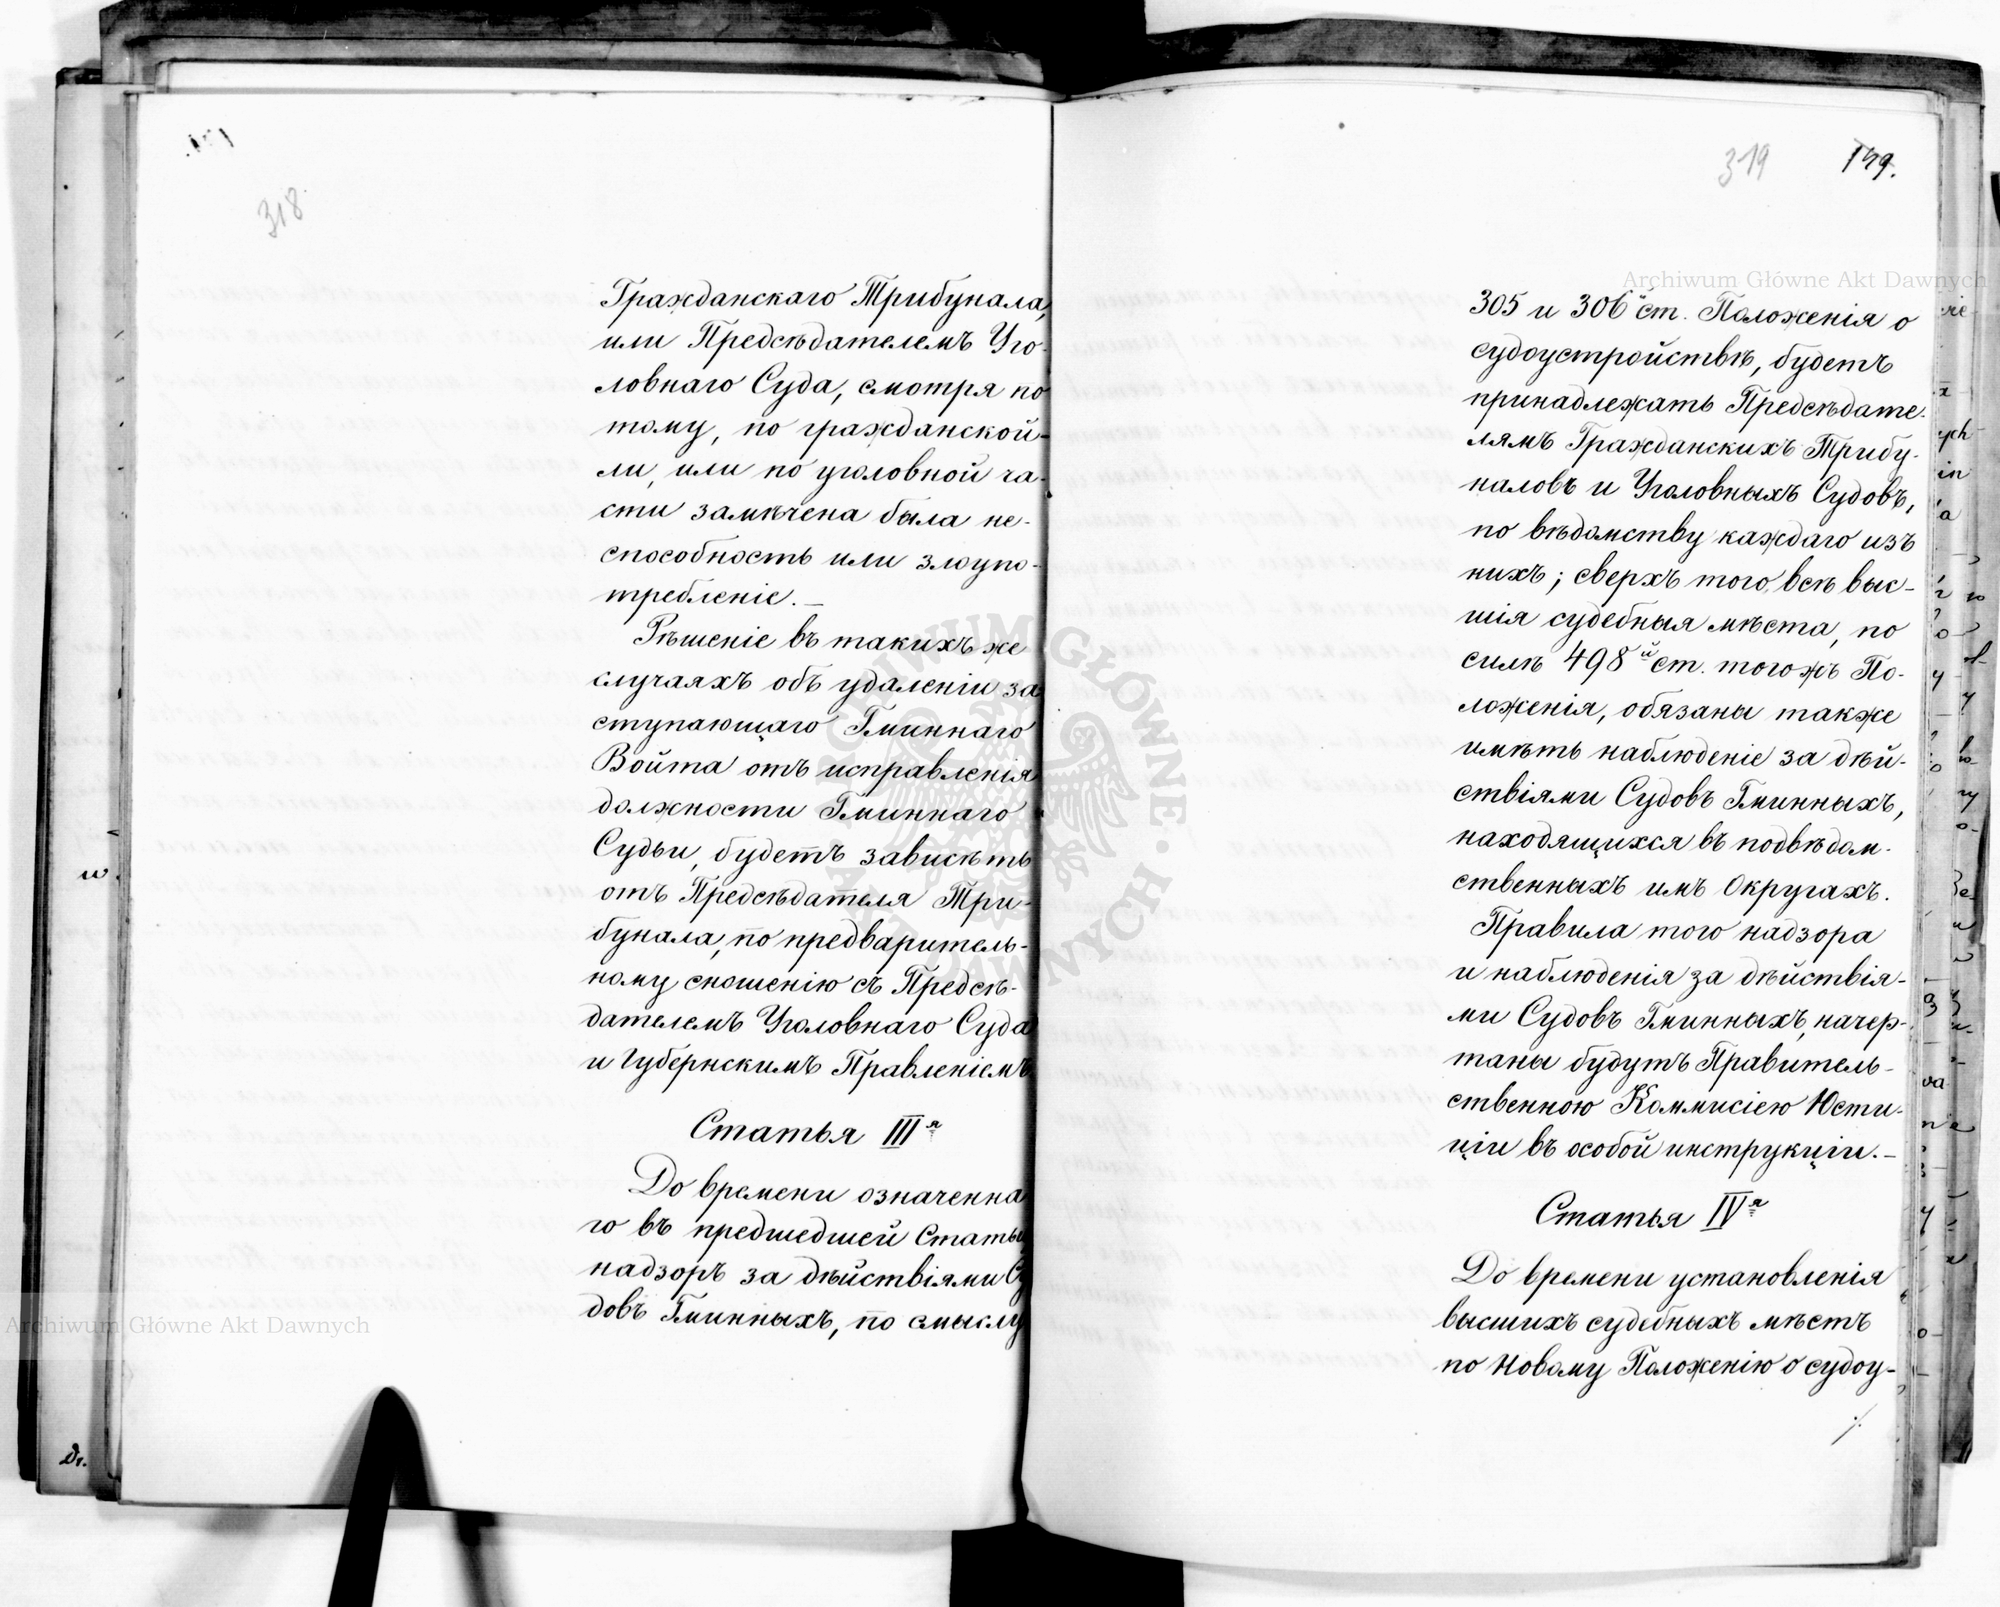 318
Гражданскаго Трибунала,
или Предсѣдателемъ Уго-
ловнаго Суда, смотря по
тому, по гражданской-
ли, или по уголовной ча-
сти замѣчена была не-
способность или злоупо-
требленіе. —
Рѣшеніе въ такихъ же
случаяхъ объ удаленіи за
ступающаго Гминнаго
Войта отъ исправленія
должности Гминнаго
Судьи, будетъ зависѣть
отъ Предсѣдателя Три-
бунала, по предваритель-
ному сношенію съ Предсѣ-
дателемъ Уголовнаго Суда
и Губернскимъ Правленіемъ
Статья III я
До времени означенна
го въ предшедшей Статьи
надзоръ за дѣйствіями Су
довъ Гминныхъ, по смыслу
319 149.
305 и 306 й ст. Положенія о
судоустройствѣ, будетъ
принадлежать Предсѣдате-
лямъ Гражданскихъ Трибу-
наловъ и Уголовныхъ Судовъ,
по вѣдомству каждаго изъ
нихъ; сверхъ того, всѣ выс-
шія судебныя мѣста, по
силѣ 498 й ст. того жъ По-
ложенія, обязаны также
имѣть наблюденіе за дѣй-
ствіями Судовъ Гминныхъ,
находящихся въ подвѣдом-
ственныхъ имъ Округахъ.
Правила того надзора
и наблюденія за дѣйствія-
ми Судовъ Гминныхъ, начер-
таны будутъ Правитель-
ственною Коммисіею Юсти-
ціи въ особой инструкціи. —
Статья IV я
До времени установленія
высшихъ судебныхъ мѣстъ
по Новому Положенію о судоу-
Archiwum Główne Akt Dawnych
Archiwum Główne Akt Dawnych
ARCHIWUM GŁÓWNE AKT DAWNYCH